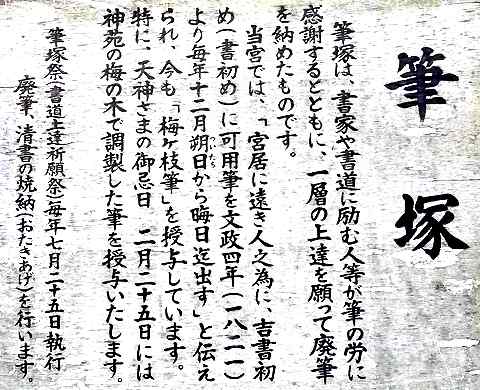 筆塚
筆塚は、書家や書道に励む人等が筆の労に
感謝するとともに、一層の上達を願って廃筆
を納めたものです。
当宮では、「宮居に遠き人之為に、吉書初
め(書初め)に可用筆を文政四年(一八二一)
より毎年十二月朔日から晦日迄出す」と伝え
ついたち
られ、今も「梅ヶ枝筆」を授与しています。
特に、天神さまの御忌日 二月二十五日には
神苑の梅の木で調製した筆を授与いたします。
筆塚祭(書道上達祈願祭)毎年七月二十五日執行
廃筆、清書の焼納(おたきあげ)を行います。